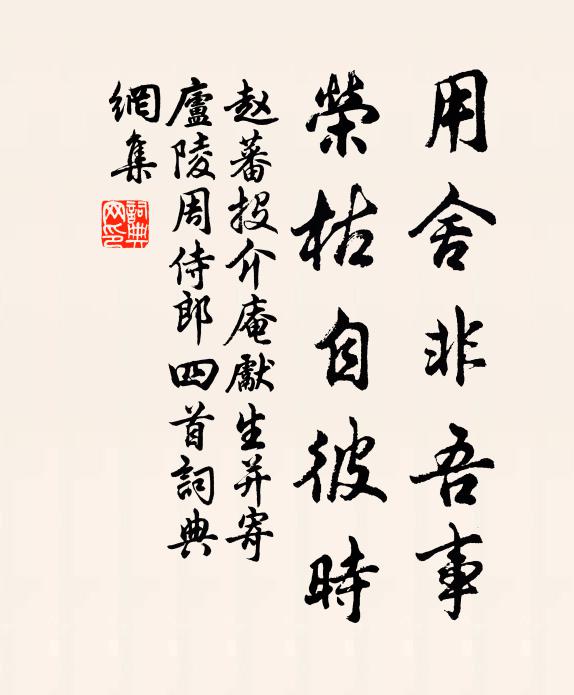 用舍非吾事
榮枯自彼時
赵蕃投介庵獻生并寄
廬陵周侍郎四首詞典
網集
詞典
网印